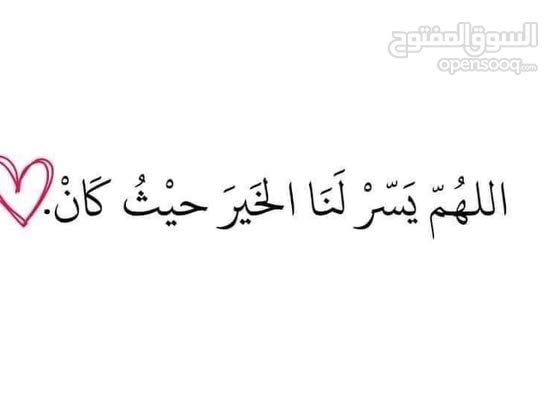 السوق المفتوح
opensooq.com
اللهُمّ يَسّرْ لَنَا الخَيرَ حيْثُ كَانْ.